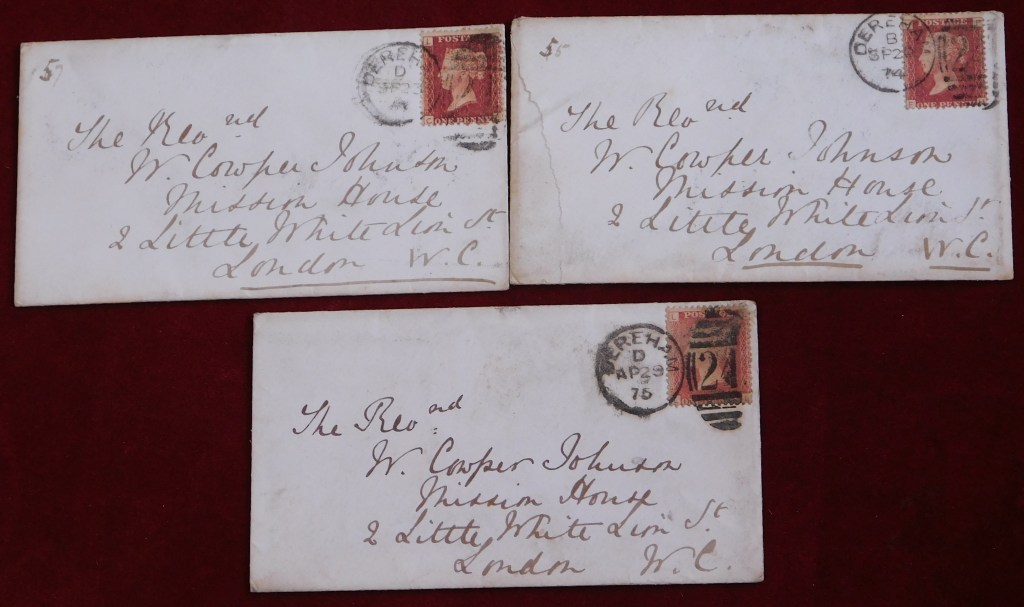 DEREHAM
D
SP23
POSTAGE
ONE PENNY
The Revnd
W. Cowper Johnson
Mission House
2 Little White Lion St
London W.C.
55
DEREHAM
B
SP2
74
ONE PENNY
The Revnd
W. Cowper Johnson
Mission House
2 Little White Lion St
London W.C.
DEREHAM
D
AP29
75
L
POSTAGE
2
The Revnd
W. Cowper Johnson
Mission House
2 Little White Lion St
London W.C.